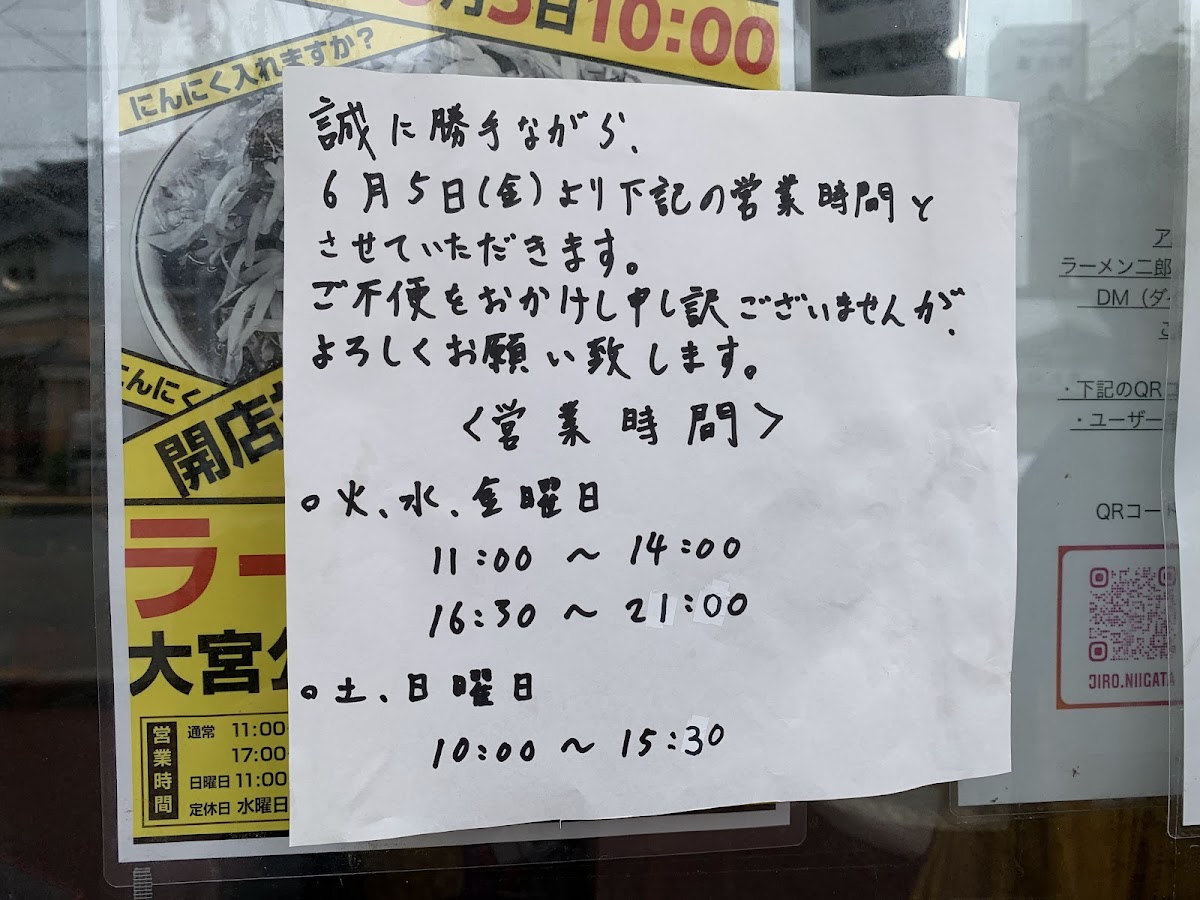 月5日10:00
にんにく入れますか?
誠に勝手ながら、
6月5日(金)より下記の営業時間と
させていただきます。
ご不便をおかけし申し訳ございませんが、
よろしくお願い致します。
<営業時間>
○火、水、金曜日
11:00 ~ 14:00
16:30 ~ 21:00
○土、日曜日
10:00 ~ 15:30
にんにく
開店
ラー
大宮公
営業時間
通常 11:00-
17:00-
日曜日 11:00
定休日 水曜日
ア
ラーメン二郎
DM(ダイ
こ
・下記のQRコ
・ユーザー
QRコード
JIRO.NIIGATA